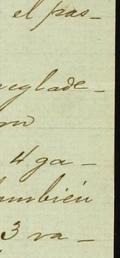 el pas-
nglade-
on
4 ga-
tambien
3 va-